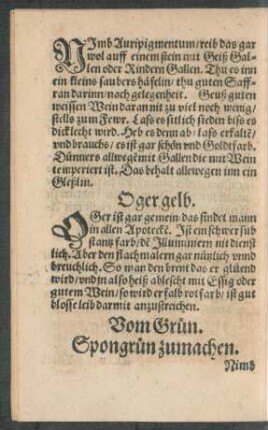 NImb Auripigmentum/reib das gar
wol auff einem stein mit Geiß Gal-
len oder Rindern Gallen. Thu es inn
ein kleins saubers häfelin/thu guten Saff-
ran darinn/nach gelegenheit. Geuß guten
weissen Wein daran nit zu viel noch wenig/
stells zum Fewr. Lass es sitlich sieden biss es
dicklecht wird. Heb es denn ab/lass erkaltē/
vnd brauchs/da rinn ist gar schön vnd Goldtfarb.
Dünners allwegē mit Gallen die mit Wein
temperiert ist. Das behalt allewegen inn ein
Gleßlin.
Oger gelb.
OGer ist gar gemein das findet mann
in allen Apoteckē. Ist ein schwer sub
stantz farb/dē Illuminiern nit dienst
lich. Aber den flachmalern gar nützlich vnnd
breuchlich. So man den brent das er glüend
wird/vnd in also heiß ablescht mit Essig oder
gutem Wein/so wird er falb rotfarb/ist gut
blosse leib darmit anzustreichen.
Vom Grün.
Spongrün zumachen.
Nimb